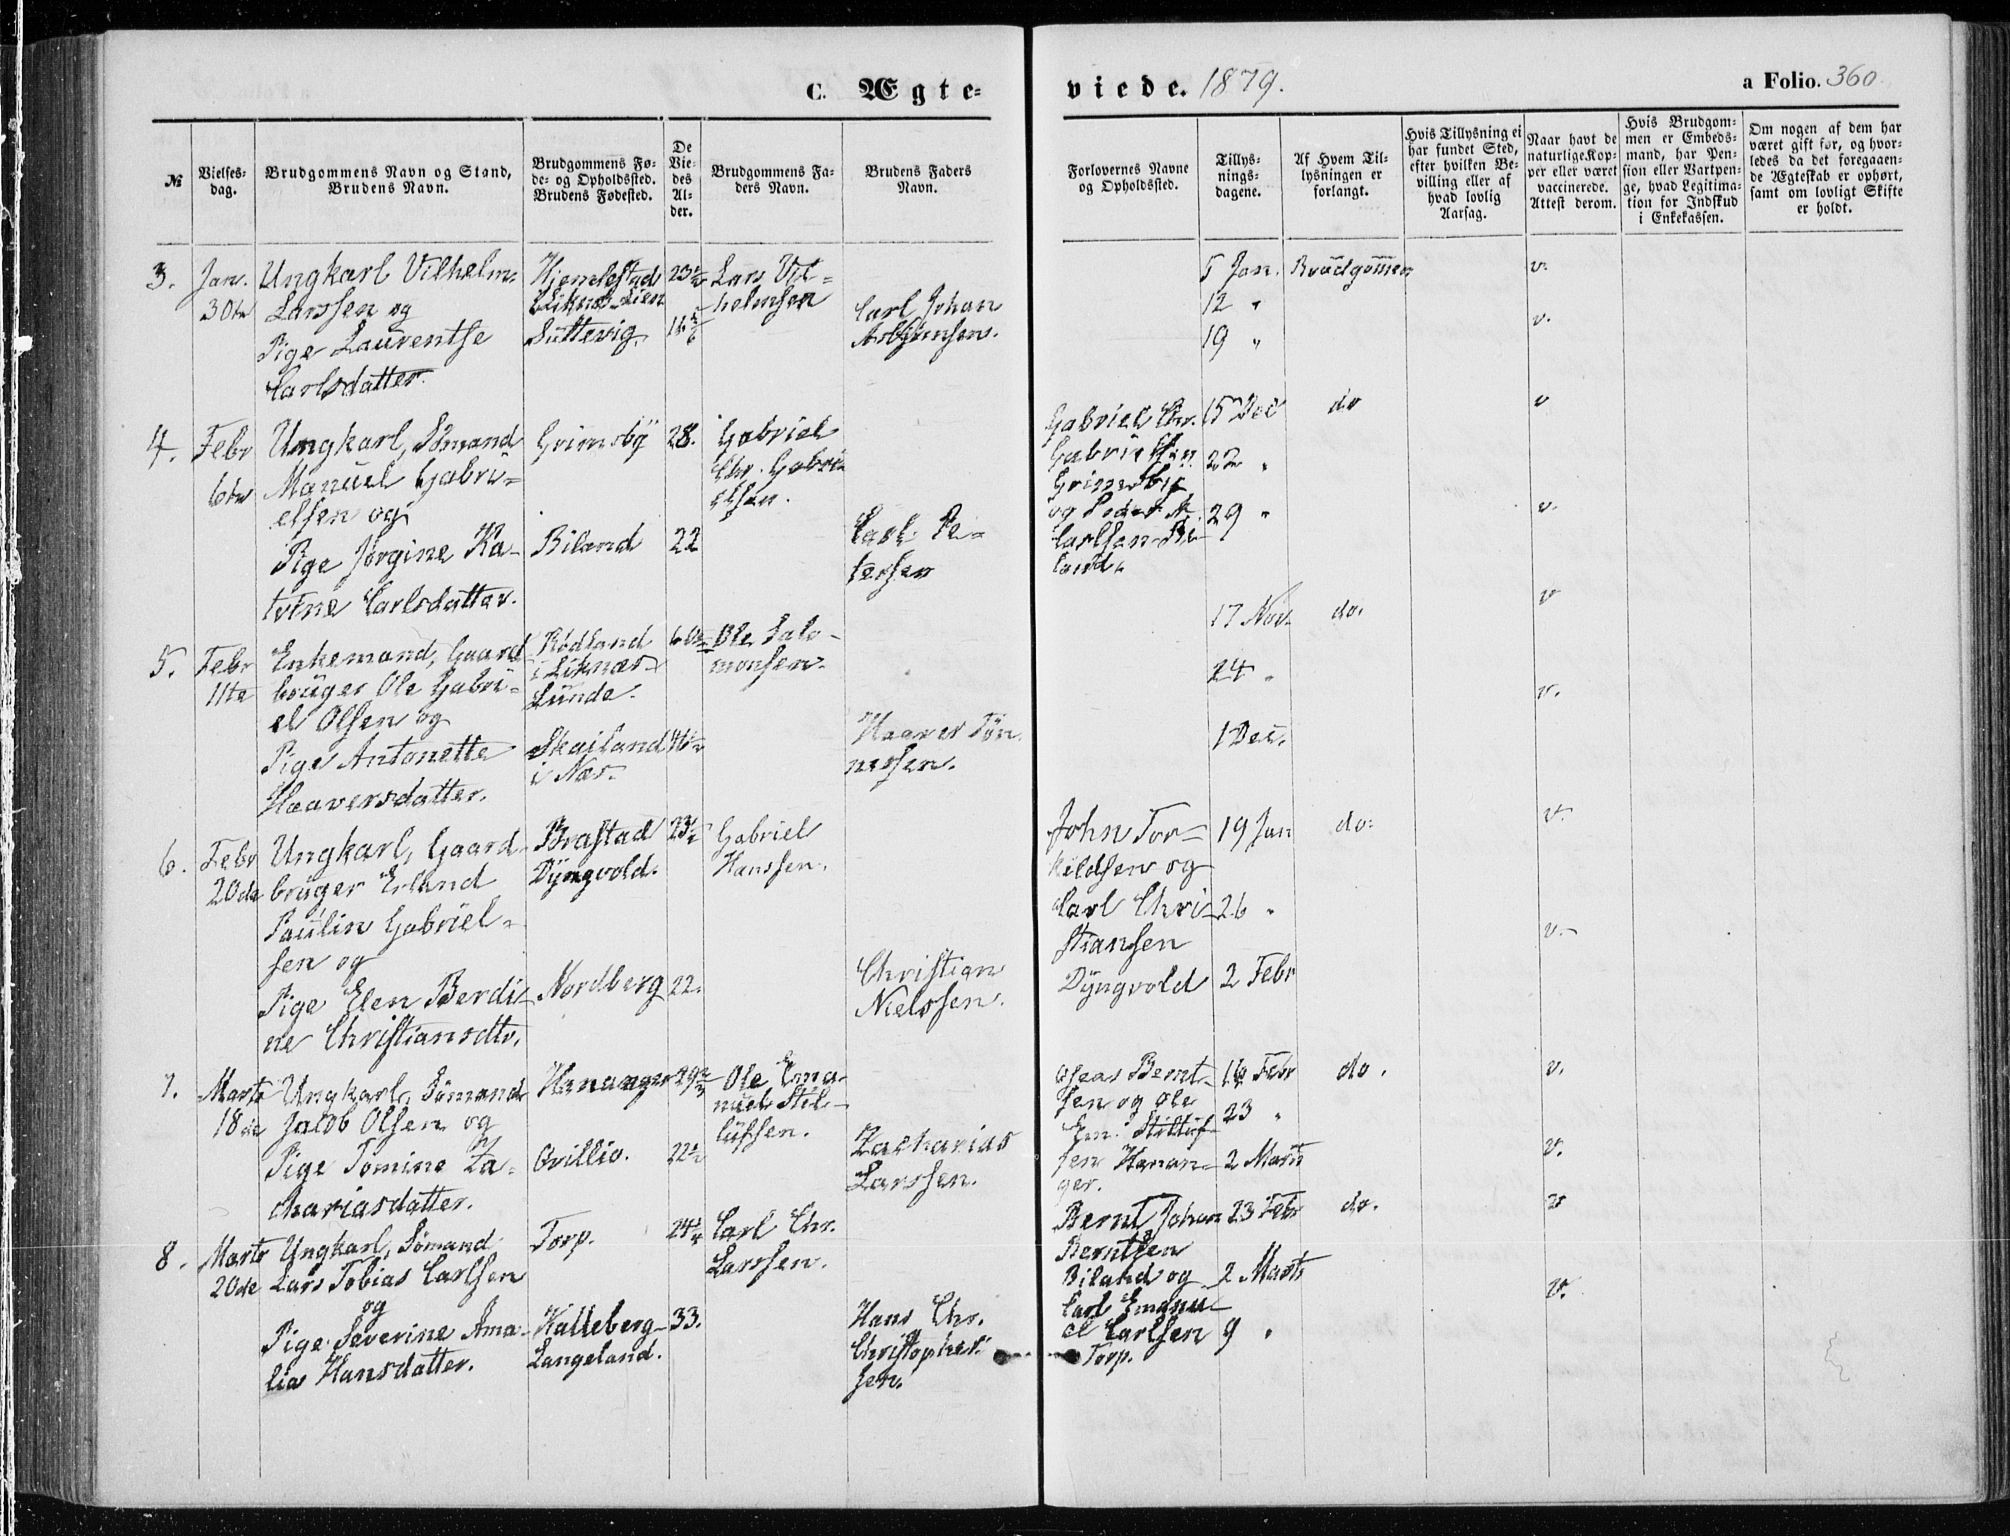 C. Ægte-
viede. 1879.
a Folio. 360.
№
Vielses-
dag.
Brudgommens Navn og Stand,
Brudens Navn.
Brudgommens Fø-
de- og Opholdssted.
Brudens Fødested.
De
Vie-
des
Al-
der.
Brudgommens Fa-
ders Navn.
Brudens Faders
Navn.
Forlovernes Navne
og Opholdssted.
Tillys-
nings-
dagene.
Af Hvem Til-
lysningen er
forlangt.
Hvis Tillysning ei
har fundet Sted,
efter hvilken Be-
villing eller af
hvad lovlig
Aarsag.
Naar havt de
naturlige Kop-
per eller været
vaccinerede.
Attest derom.
Hvis Brudgom-
men er Embeds-
mand, har Pen-
sion eller Vartpen-
ge, hvad Legitima-
tion for Indskud
i Enkekassen.
Om nogen af dem har
været gift før, og hvor-
ledes da det foregaaen-
de Ægteskab er ophørt,
samt om lovligt Skifte
er holdt.
3.
Jan.
30te
Ungkarl Vilhelm
Larssen og
Pige Laurentse
Carlsdatter.
Hjemlestad
Liknes Lien
Suttevig.
23½
Lars Vil-
helmsen
Carl Johan
Asbjørnsen.
5 Jan.
12 "
19 "
Brudgommen
v.
v.
4.
Febr
6te
Ungkarl, Sömand
Manuel Gabri-
elsen og
Pige Jørgine Ka-
trine Carlsdatter.
Grimsby
Biland
28.
22
Gabriel
Chr. Gabri-
elsen.
Carl Pe-
tersen
Gabriel Chr.
Gabrielsen
Grimsby
og Peder N.
Carlsen Bi-
land.
15 Dec
22 "
29 "
do
v
v.
5.
Febr
11te
Enkemand, Gaard-
brüger Ole Gabri-
el Olsen og
Pige Antonette
Haaversdatter.
Rödland
i Liknæs
Lunde.
Skailand
i Næs.
Ole Salo-
monsen.
Haaver Tøn-
nessen.
17 Nov.
24 "
1 Dec.
do.
v
v.
6.
Febr
20de
Ungkarl, Gaard-
brüger Erland
Paulin Gabriel-
sen og
Pige Elen Berdi-
ne Christiansdtr.
Brastad
Dyngvold.
Nordberg
23½
22.
Gabriel
Hanssen.
Christian
Nielssen.
John Tor-
kildsen og
Carl Chri-
stiansen
Dyngvold
19 Jan
26 "
2 Febr
do.
v.
v.
7.
Marts
18de
Ungkarl, Sömand
Jacob Olsen og
Pige Tomine Za-
chariasdatter.
Hananger
Qvillio.
22½
Ole Ema-
nuel Stil-
lufsen.
Zacharias
Larssen.
Oseas Bernt-
sen og Ole
Em. Stilluf-
sen Hanan-
ger.
16 Febr
23 "
2 Marts
do.
v.
v.
8.
Marts
20de
Ungkarl, Sömand
Lars Tobias Carlsen
og
Pige Severine Ama-
lia Hansdatter.
Torp.
Kalleberg-
Langeland.
33.
Carl Chr.
Larssen.
Hans Chr.
Christopher-
sen.
Bernt Johan
Berntsen
Biland og
Carl Emanu-
el Carlsen
Torp.
23 Febr
2 Marts
9 "
do.
v
v.